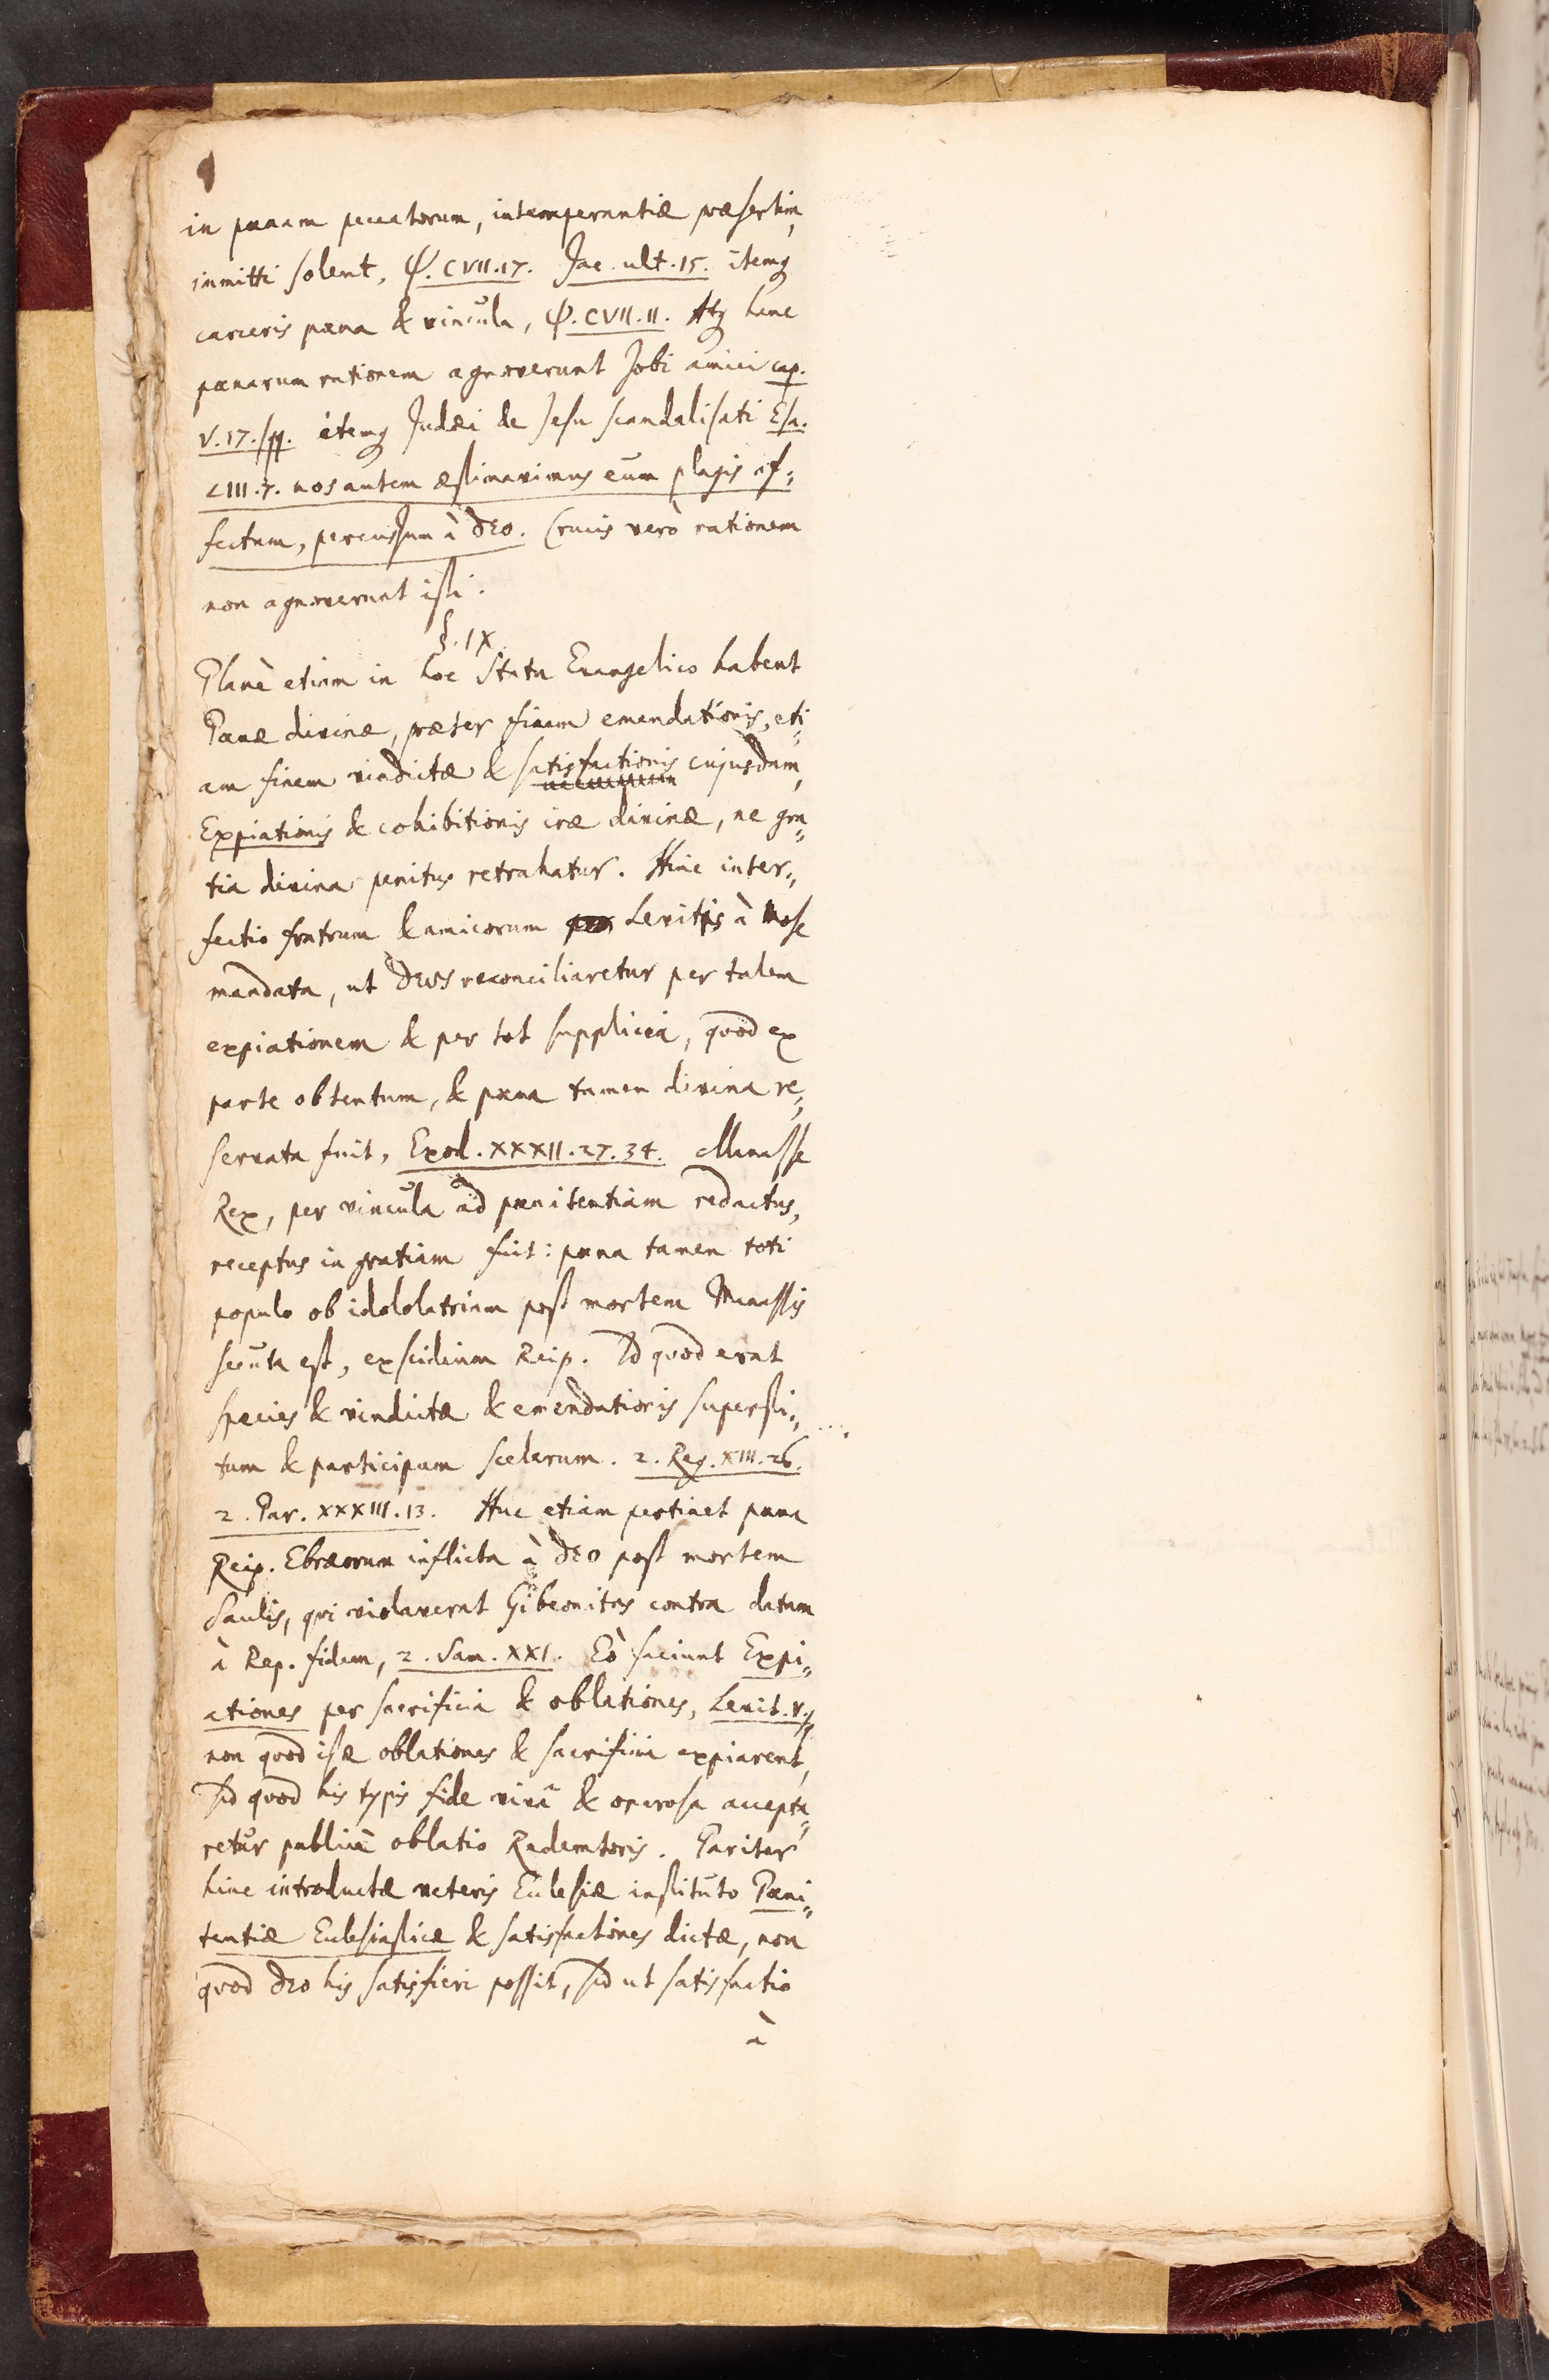 in pœnam peccatorum, intemperantiæ præsertim,
immitti solent, Ψ. CVII.17. Jac. ult. 15. itemq
carceris pœna & vincula, Ψ. CVII.11. Atq hanc
pœnarum rationem agnoverunt Jobi amici cap.
V.17.sqq. itemq Judæi de Jesu scandalisati Esa.
LIII.7. nos autem æstimavimus eum plagis af-
fectum, percussum à DEO. Crucis verò rationem
non agnoverunt isti.
§. IX.
Planè etiam in hoc Statu Evangelico habent
Pœnæ divinæ, præter finem emendationis, eti-
am finem vindictæ & satisfactionis cujusdam,
Expiationis & cohibitionis iræ divinæ, ne gra-
tia divina penitus retrahatur. Hinc inter-
fectio fratrum & amicorum Levitis à Mose
mandata, ut DEUS reconciliaretur per talem
expiationem & per tot supplicia, quod ex
parte obtentum, & pœna tamen divina re-
servata fuit, Exod. XXXII.27.34. Manasse
Rex, per vincula ad pœnitentiam redactus,
receptus in gratiam fuit: pœna tamen toti
populo ob idololatriam post mortem Manassis
secuta est, exscidium Reip. Id quod erat
species & vindictæ & emendationis supersti-
tum & participum scelerum. 2. Reg. XIII.26.
2. Par. XXXIII.13. Huc etiam pertinet pœna
Reip. Ebræorum inflicta à DEO post mortem
Saulis, qui violaverat Gibeonitas contra datam
à Rep. fidem, 2. Sam. XXI. Eò faciunt Expi-
ationes per sacrificia & oblationes, Levit. V.
non quod ipsæ oblationes & sacrificia expiarent,
sed quod his typis fide vivâ & operosa accepta-
retur publicè oblatio Redemtoris. Pariter
hinc introductæ veteris Ecclesiæ instituto Pœni-
tentiæ Ecclesiasticæ & satisfactiones dictæ, non
quod DEO his satisfieri possit, sed ut satisfactio
à